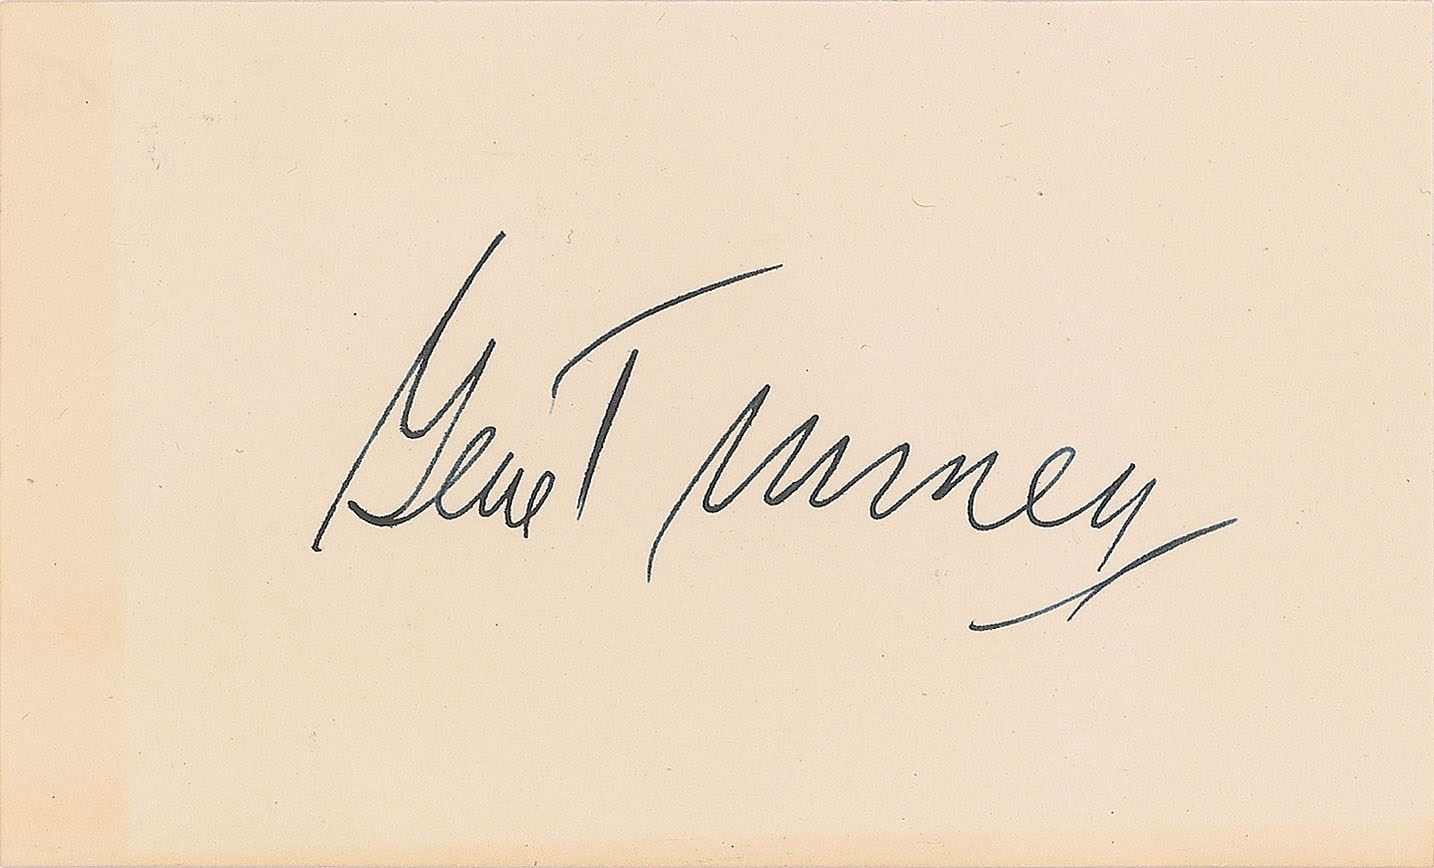 Gene Tunney